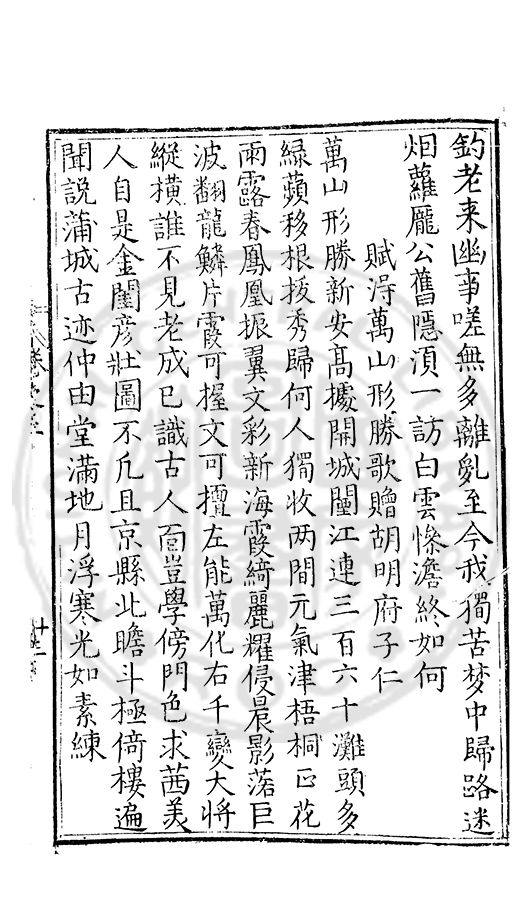 釣老来幽事嗟無多離亂至今我獨苦梦中歸路迷
烟蘿龐公舊隱湏一訪白雲慘澹終如何
賦淂萬山形勝歌贈胡明府子仁
萬山形勝新安髙㩀開城闉江連三百六十灘頭多
緑蘋移根抜秀歸何人獨收两間元氣津梧桐正花
雨露春鳳凰振翼文彩新海霞綺麗耀侵晨影落巨
波翻龍鱗片霞可握文可擅左能萬化右千變大将
縱横誰不見老成已識古人面豈學傍門色求茜羙
人自是金閨彦壯圖不凢且京縣此瞻斗極倚樓遍
聞説蒲城古迹仲由堂滿地月浮寒光如素練